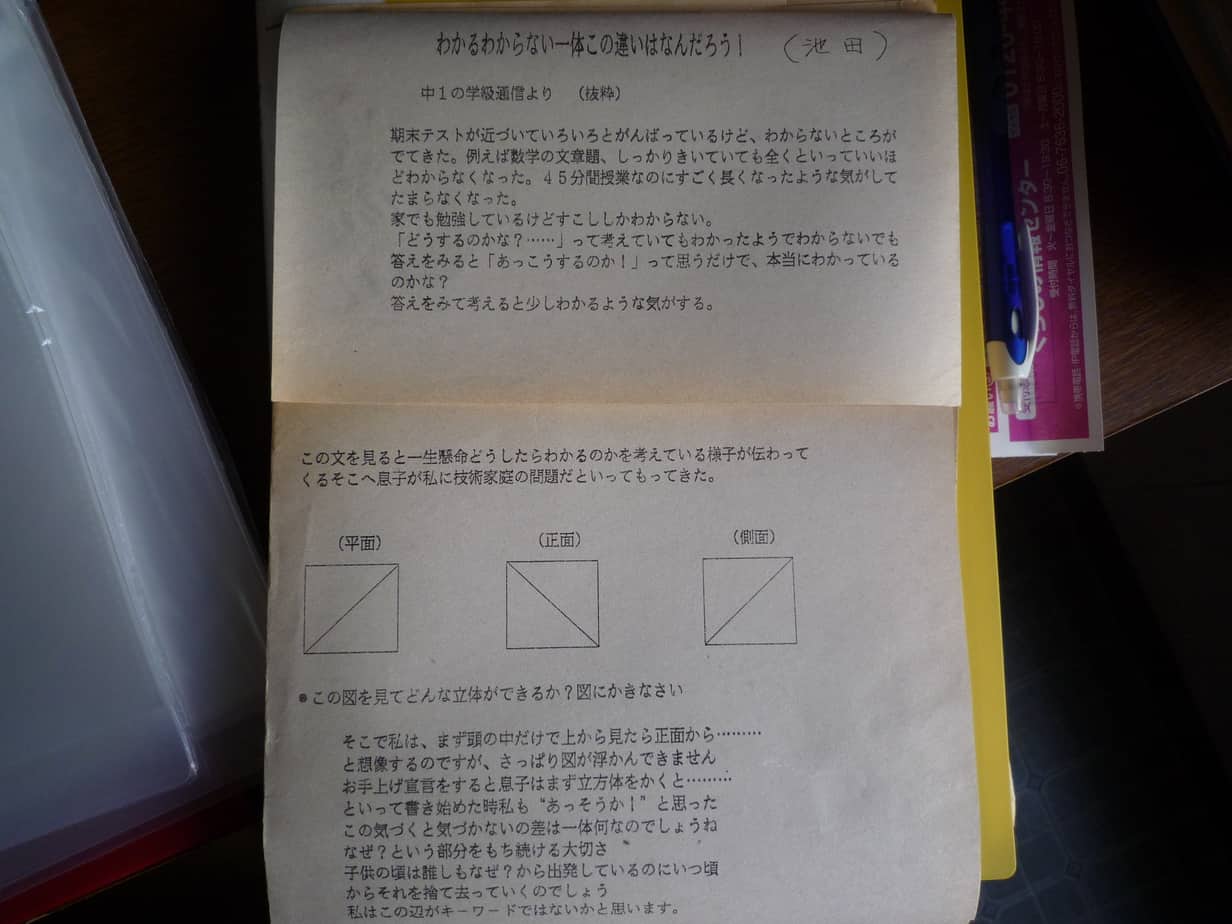 わかるわからない一体この違いはなんだろう！ （池田）
中１の学級通信より （抜粋）
期末テストが近づいていろいろとがんばっているけど、わからないところが
でてきた。例えば数学の文章題、しっかりきいていても全くといっていいほ
どわからなくなった。４５分間授業なのにすごく長くなったような気がして
たまらなくなった。
家でも勉強しているけどすこししかわからない。
「どうするのかな？……」って考えていてもわかったようでわからないでも
答えをみると「あっこうするのか！」って思うだけで、本当にわかっている
のかな？
答えをみて考えると少しわかるような気がする。
この文を見ると一生懸命どうしたらわかるのかを考えている様子が伝わって
くるそこへ息子が私に技術家庭の問題だといってもってきた。
（平面） （正面） （側面）
●この図を見てどんな立体ができるか？図にかきなさい
そこで私は、まず頭の中だけで上から見たら正面から………
と想像するのですが、さっぱり図が浮かんできません
お手上げ宣言をすると息子はまず立方体をかくと………
といって書き始めた時私も“あっそうか！”と思った
この気づくと気づかないの差は一体何なのでしょうね
なぜ？という部分をもち続ける大切さ
子供の頃は誰しもなぜ？から出発しているのにいつ頃
からそれを捨て去っていくのでしょう
私はこの辺がキーワードではないかと思います。
情報センター
受付時間 火〜金曜日